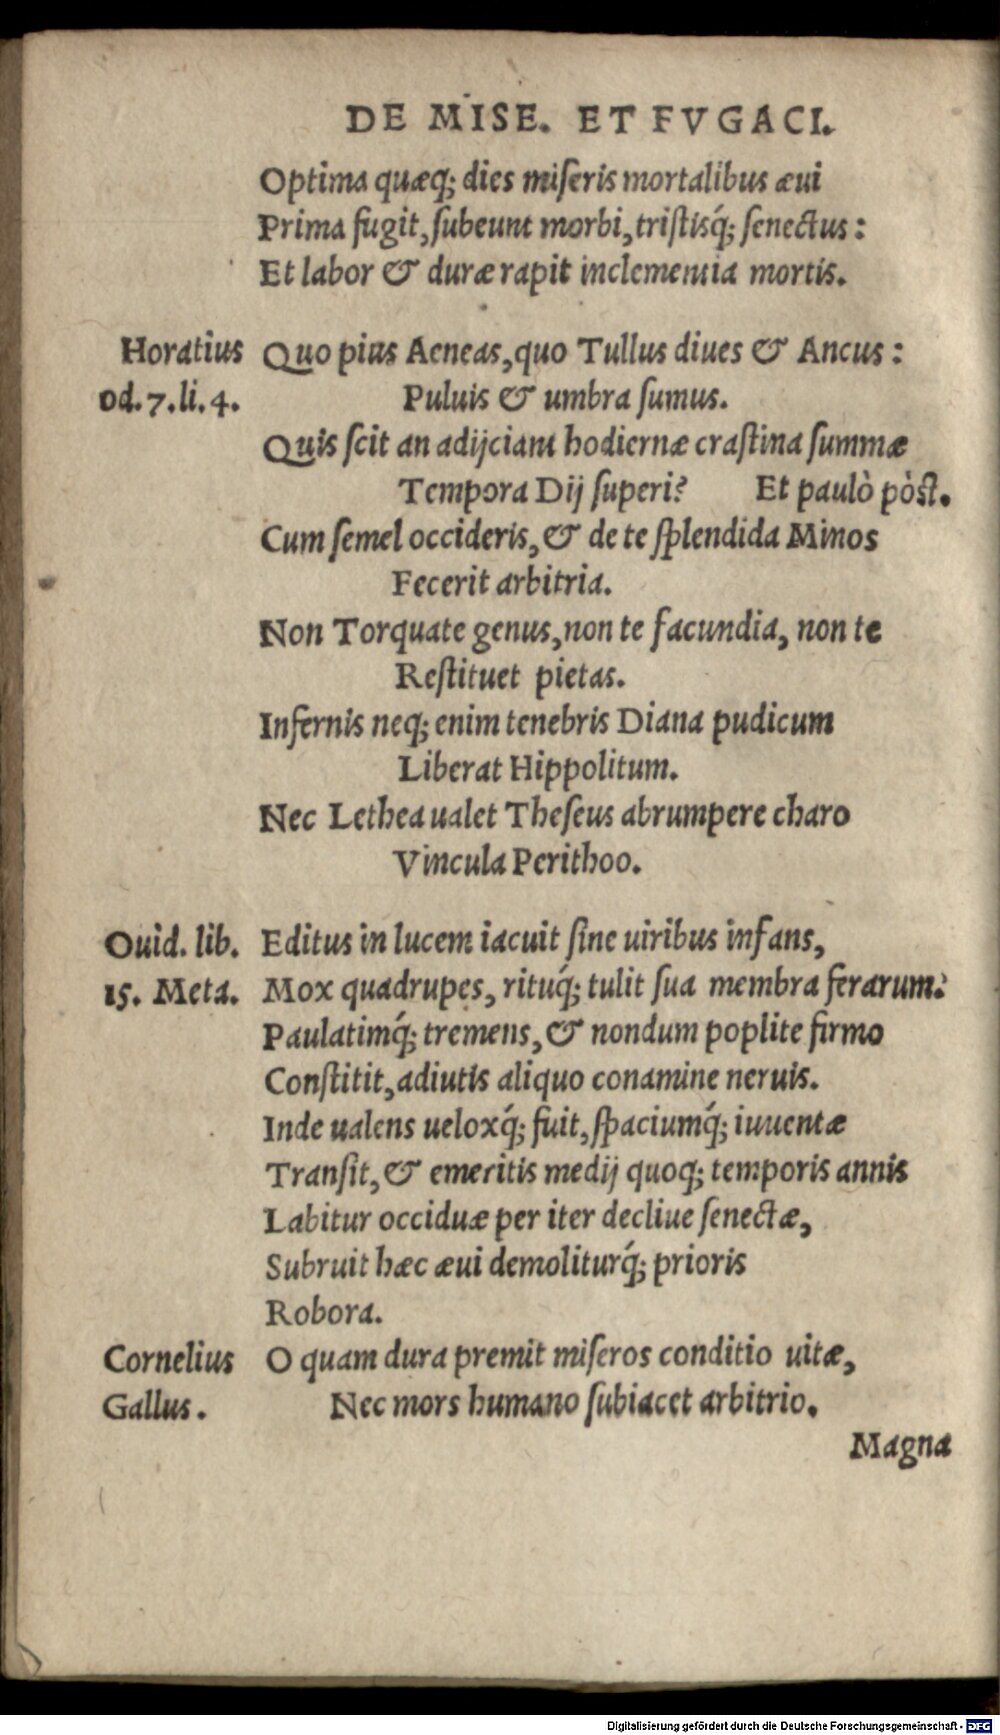 DE MISE. ET FVGACI.
Optima quæq; dies miſeris mortalibus æui
Prima fugit, ſubeunt morbi, triſtisq́; ſenectus:
Et labor & duræ rapit inclementia mortis.
Horatius Quo pius Aeneas, quo Tullus diues & Ancus:
od. 7. li. 4. Puluis & umbra ſumus.
Quis ſcit an adijciant hodiernæ craſtina ſummæ
Tempora Dij ſuperi? Et paulò pòſt.
Cum ſemel occideris, & de te ſplendida Minos
Fecerit arbitria.
Non Torquate genus, non te facundia, non te
Reſtituet pietas.
Infernis neq; enim tenebris Diana pudicum
Liberat Hippolitum.
Nec Lethea ualet Theſeus abrumpere charo
Vincula Perithoo.
Ouid. lib. Editus in lucem iacuit ſine uiribus infans,
15. Meta. Mox quadrupes, rituq́; tulit ſua membra ferarum:
Paulatimq́; tremens, & nondum poplite firmo
Conſtitit, adiutis aliquo conamine neruis.
Inde ualens ueloxq́; fuit, ſpaciumq́; iuuentæ
Tranſit, & emeritis medij quoq; temporis annis
Labitur occiduæ per iter decliue ſenectæ,
Subruit hæc æui demoliturq́; prioris
Robora.
Cornelius O quam dura premit miſeros conditio uitæ,
Gallus. Nec mors humano ſubiacet arbitrio.
Magna
Digitalisierung gefördert durch die Deutsche Forschungsgemeinschaft - DFG